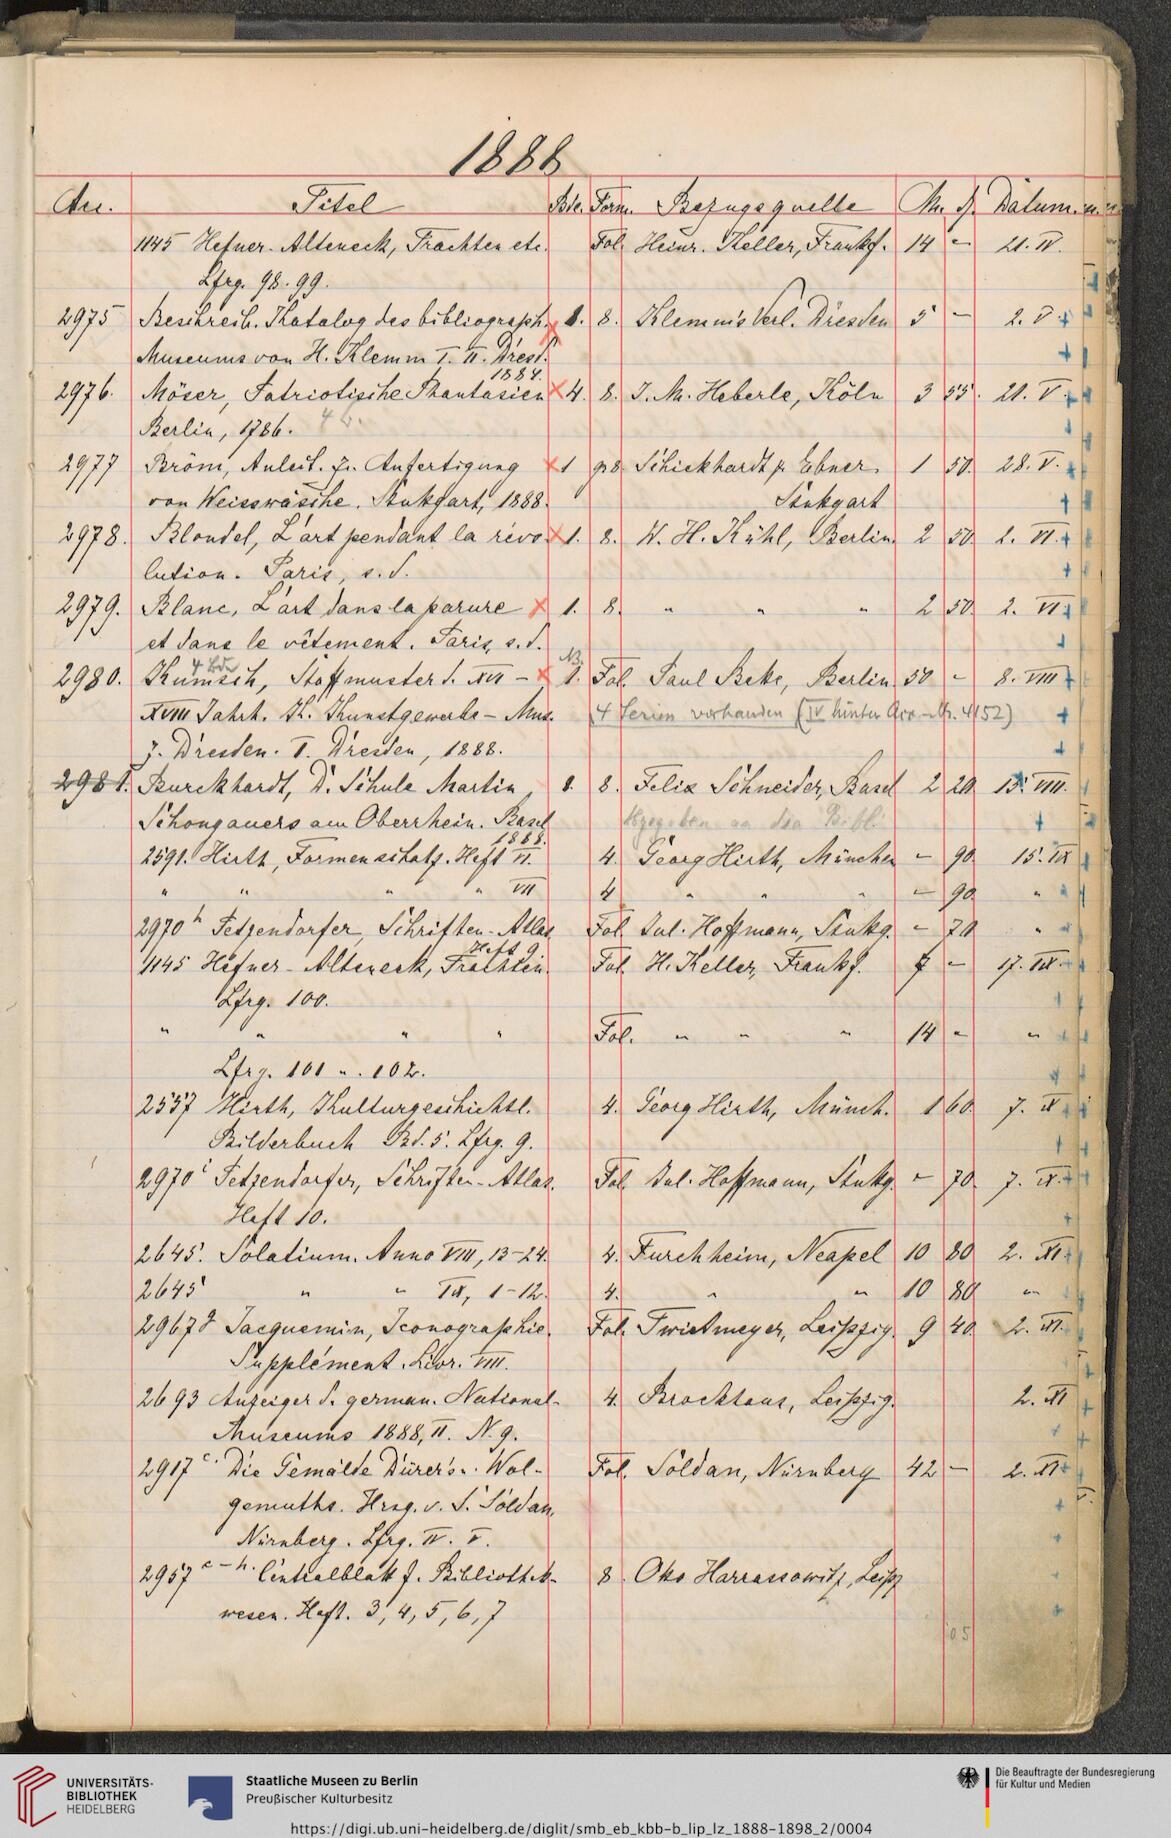 1888
Nr. Titel Bde. Form. Bezugsquelle M. ₰. Datum.
1145 Hefner-Alteneck, Trachten etc. Fol. Heinr. Keller, Frankf. 14 – 21. IV.
Lfrg. 98. 99.
2975 Beschreib. Katalog des bibliograph. 1. 8. Klemm's Verl. Dresden 5 – 2. V.
Museums von H. Klemm I. II. Dresd. 1884.
2976. Möser, Patriotische Phantasien 4. 8. J. M. Heberle, Köln 3 55. 21. V.
Berlin, 1786.
2977 Bröm, Anleit. z. Anfertigung 1 gr8. Schickhardt & Ebner. 1 50. 28. V.
von Weisswäsche. Stuttgart, 1888. Stuttgart
2978. Blondel, L'art pendant la révo- 1. 8. W. H. Kühl, Berlin. 2 50. 2. VI.
lution. Paris, s. d.
2979. Blanc, L'art dans la parure 1. 8. " " " 2 50. 2. VI.
et dans le vêtement. Paris, s. d.
4 Bde
2980. Kumsch, Stoffmuster d. XVI – 1. Fol. Paul Bette, Berlin. 50 – 8. VIII
XVIII Jahrh. K. Kunstgewerbe-Mus. 4 Serien vorhanden (IV hinter Acc.-Nr. 4152)
z. Dresden. I. Dresden, 1888.
2981. Burckhardt, D. Schule Martin 1. 8. Felix Schneider, Basel 2 20. 15. VIII.
Schongauers am Oberrhein. Basel 1888. Abgegeben an die Bibl.
2591. Hirth, Formenschatz. Heft VI. 4. Georg Hirth, München – 90. 15. IX
" " " " VII 4 " " " – 90. "
2970 h Petzendorfer, Schriften-Atlas Heft 9. Fol. Jul. Hoffmann, Stuttg. – 70 "
1145 Hefner-Alteneck, Trachten. Fol. H. Keller, Frankf. 7 – 17. IX.
Lfrg. 100.
" " " " Fol. " " " 14 – "
Lfrg. 101 u. 102.
2557 Hirth, Kulturgeschichtl. 4. Georg Hirth, Münch. 1 60. 7. X
Bilderbuch Bd. 5. Lfrg. 9.
2970 i Petzendorfer, Schriften-Atlas. Fol. Jul. Hoffmann, Stuttg. – 70. 7. IX.
Heft 10.
2645. Solatium. Anno VIII, 13–24. 4. Furchheim, Neapel 10 80 2. XI.
2645 " " IX, 1–12. 4. " " 10 80. "
2967 g Jacquemin, Iconographie. Fol. Twietmeyer, Leipzig. 9 40. 2. XI.
Supplément. Livr. VIII.
2693 Anzeiger d. german. National- 4. Brockhaus, Leipzig. 2. XI
Museums 1888, II. N. 9.
2917 c. Die Gemälde Dürer's u. Wol- Fol. Soldan, Nürnberg 42 – 2. XI
gemuths. Hrsg. v. S. Soldan,
Nürnberg. Lfrg. IV. V.
2957 c–h. Centralblatt f. Bibliothek- 8 Otto Harrassowitz, Leipz
wesen. Heft. 3, 4, 5, 6, 7
UNIVERSITÄTS-
BIBLIOTHEK
HEIDELBERG
Staatliche Museen zu Berlin
Preußischer Kulturbesitz
Die Beauftragte der Bundesregierung
für Kultur und Medien
https://digi.ub.uni-heidelberg.de/diglit/smb_eb_kbb-b_lip_lz_1888-1898_2/0004